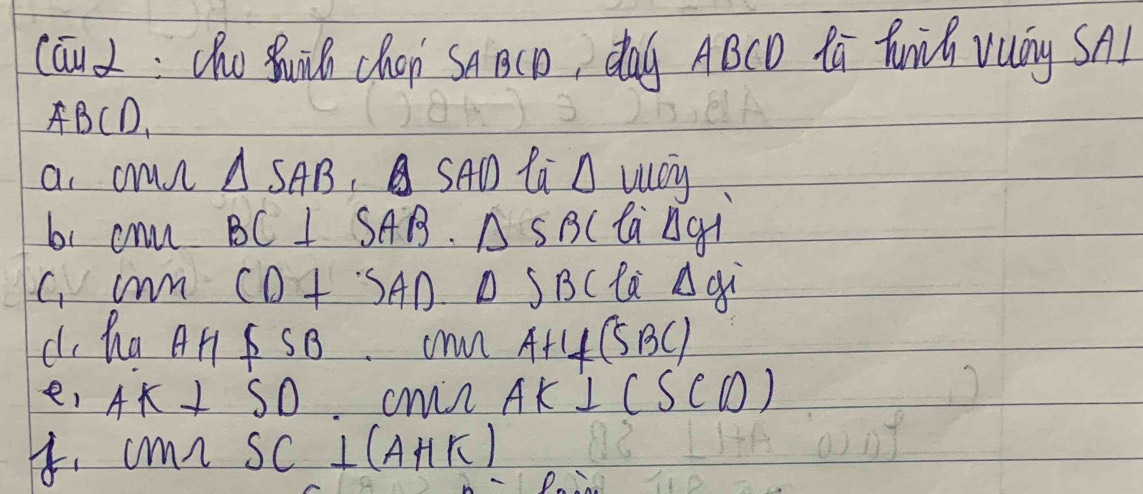 Câu 2 : cho hình chóp SABCD, đáy ABCD là hình vuông SA⊥
ABCD.
a, cmr Δ SAB, Δ SAD là Δ vuông
b, cmr BC ⊥ SAB. Δ SBC là Δ gì
c, cmr CD ⊥ SAD Δ SBC là Δ gì
d, hạ AH ⊥ SB. cmr AH⊥(SBC)
e, AK ⊥ SD. cmr AK ⊥ (SCD)
f, cmr SC ⊥ (AHK)